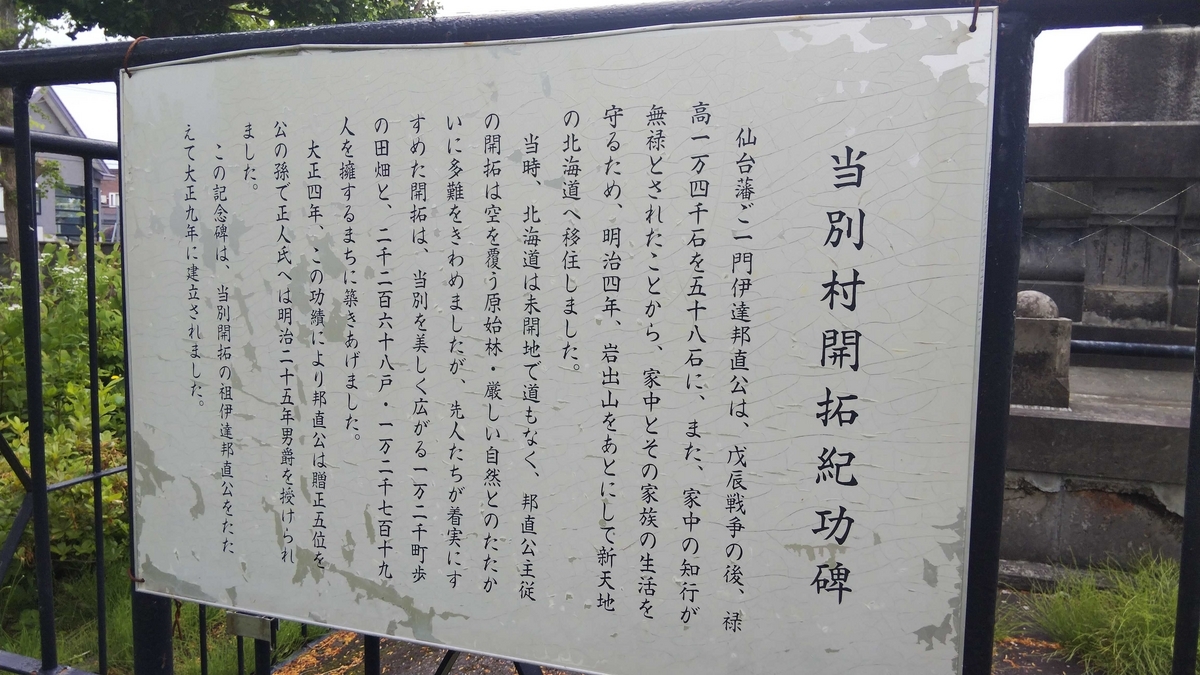 当別村開拓紀功碑
仙台藩ご一門伊達邦直公は、戊辰戦争の後、禄
高一万四千石を五十八石に、また、家中の知行が
無禄とされたことから、家中とその家族の生活を
守るため、明治四年、岩出山をあとにして新天地
の北海道へ移住しました。
当時、北海道は未開地で道もなく、邦直公主従
の開拓は空を覆う原始林・厳しい自然とのたたか
いに多難をきわめましたが、先人たちが着実にす
すめた開拓は、当別を美しく広がる一万二千町歩
の田畑と、二千二百六十八戸・一万二千七百十九
人を擁するまちに築きあげました。
大正四年、この功績により邦直公は贈正五位を
公の孫で正人氏へは明治二十五年男爵を授けられ
ました。
この記念碑は、当別開拓の祖伊達邦直公をたた
えて大正九年に建立されました。